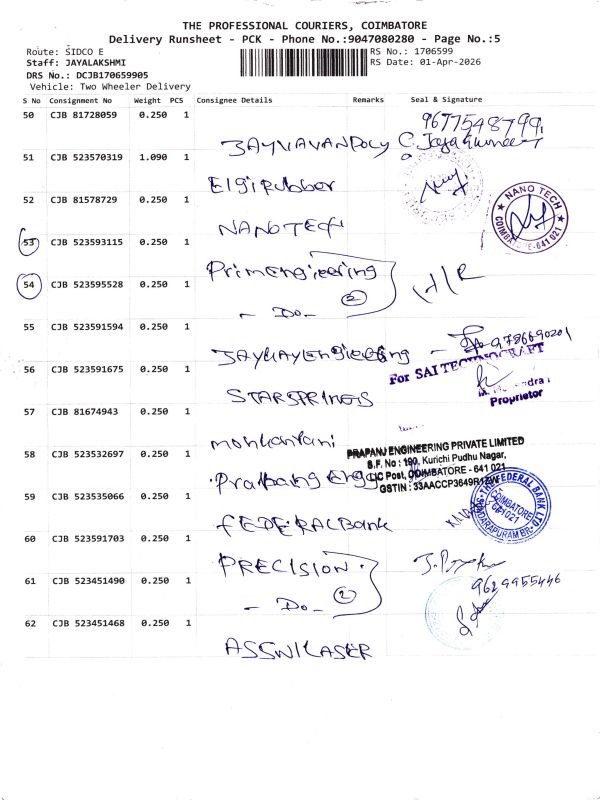 THE PROFESSIONAL COURIERS, COIMBATORE
Delivery Runsheet - PCK - Phone No.:9047080280 - Page No.:5
Route: SIDCO E
RS No.: 1706599
Staff: JAYALAKSHMI
RS Date: 01-Apr-2026
DRS No.: DCJB170659905
Vehicle: Two Wheeler Delivery
S No Consignment No Weight PCS Consignee Details Remarks Seal & Signature
50 CJB 81728059 0.250 1
9677548799
51 CJB 523570319 1.090 1
Elgirubber
52 CJB 81578729 0.250 1
NANOTECH
NANO TECH
COIMBATORE-641 021
53 CJB 523593115 0.250 1
Primengineering
54 CJB 523595528 0.250 1
2
- Do -
55 CJB 523591594 0.250 1
9786690201
For SAI TECHNOCRAFT
56 CJB 523591675 0.250 1
STARSPRINGS
Proprietor
57 CJB 81674943 0.250 1
PRAPANJ ENGINEERING PRIVATE LIMITED
58 CJB 523532697 0.250 1
S.F. No : 190, Kurichi Pudhu Nagar,
LIC Post, COIMBATORE - 641 021
59 CJB 523535066 0.250 1
FEDERALBank
THE FEDERAL BANK LTD
COIMBATORE
60 CJB 523591703 0.250 1
PRECISION
61 CJB 523451490 0.250 1
9629955446
- Do -
2
62 CJB 523451468 0.250 1